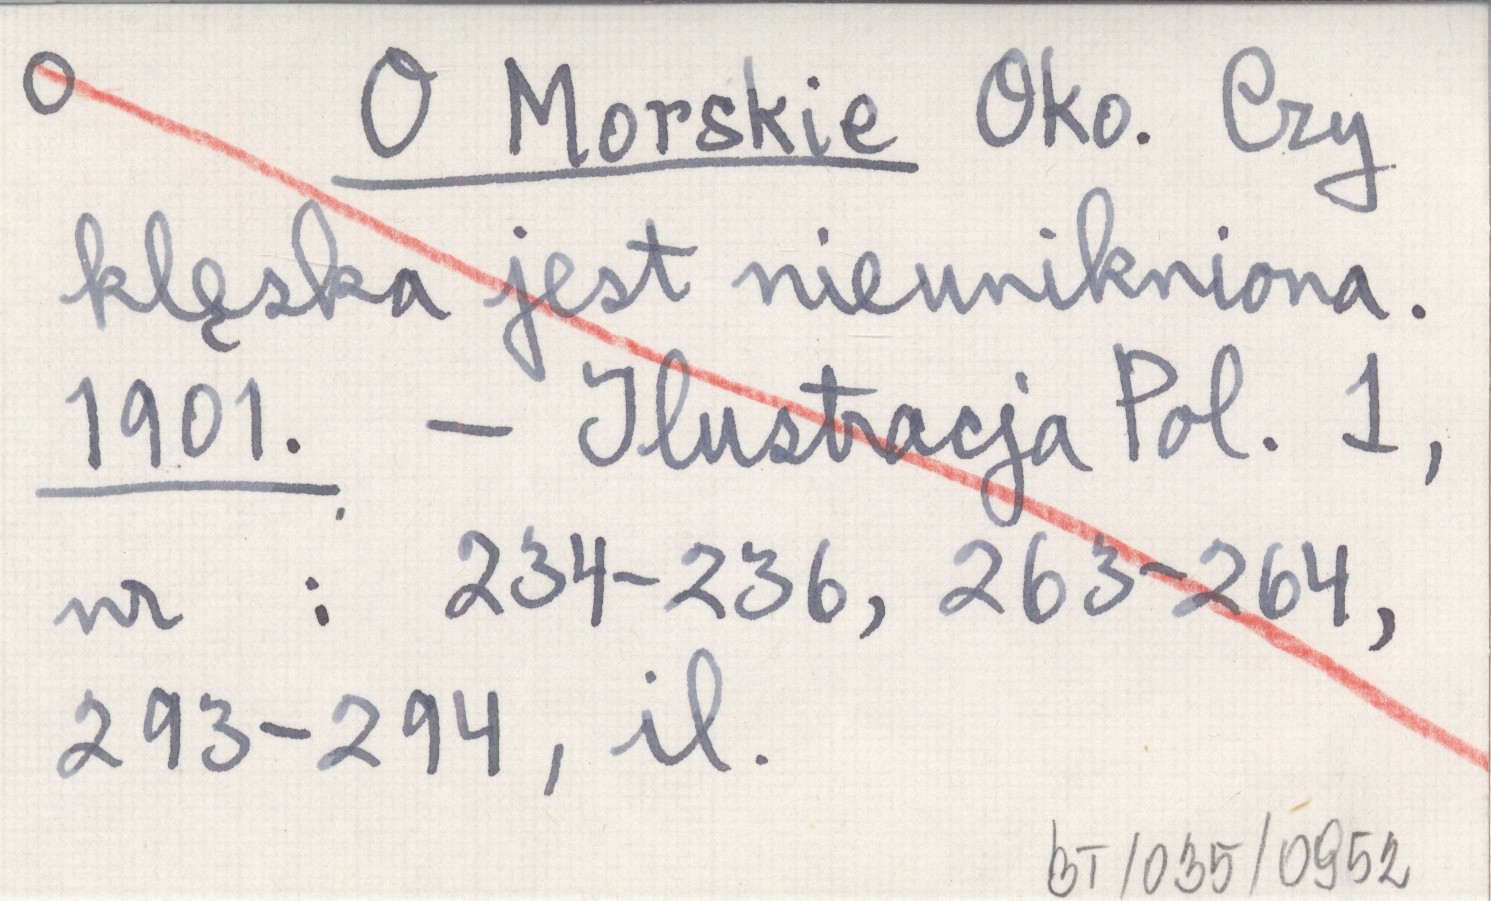 O O Morskie Oko. Czy
klęska jest nieunikniona.
1901. — Ilustracja Pol. 1,
nr : 234-236, 263-264,
293-294, il.
BT/035/0952